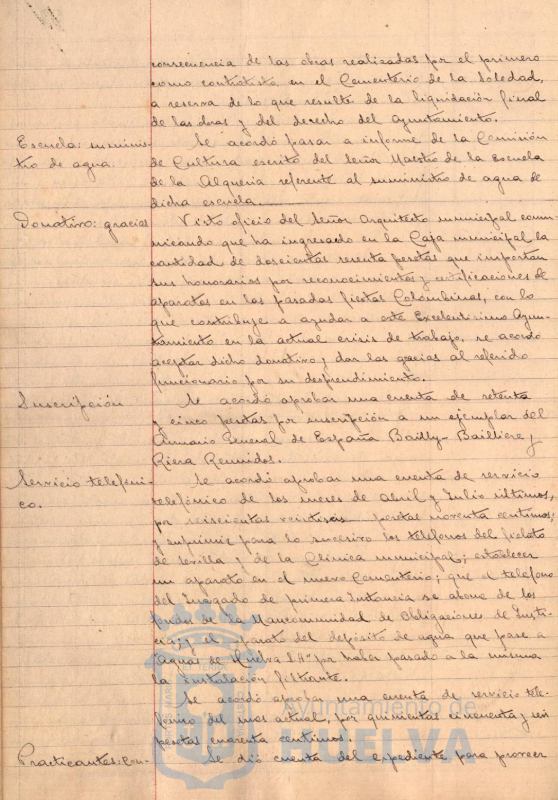 consecuencia de las obras realizadas por el primero
como contratista en el Cementerio de la Soledad,
a reserva de lo que resulte de la liquidación final
de las obras y del derecho del Ayuntamiento.
Escuela: suminis-
tro de agua.
Se acordó pasar a informe de la Comisión
de Cultura escrito del Señor Maestro de la Escuela
de la Alquería referente al suministro de agua de
dicha escuela.
Donativo: gracias
Visto oficio del Señor Arquitecto municipal comu-
nicando que ha ingresado en la Caja municipal la
cantidad de doscientas sesenta pesetas que importan
sus honorarios por reconocimientos y certificaciones de
aparatos en las pasadas fiestas Colombinas, con lo
que contribuye a ayudar a este Excelentísimo Ayun-
tamiento en la actual crisis de trabajo, se acordó
aceptar dicho donativo y dar las gracias al referido
funcionario por su desprendimiento.
Suscripción
Se acordó aprobar una cuenta de setenta
y cinco pesetas por suscripción a un ejemplar del
Anuario General de España Bailly-Bailliere y
Riera Reunidos.
Servicio telefóni-
co.
Se acordó aprobar una cuenta de servicio
telefónico de los meses de Abril y Julio últimos,
por seiscientas pesetas noventa centimos;
y suprimir para lo sucesivo los teléfonos del
de Sevilla y de la Clínica municipal; establecer
un aparato en el nuevo Cementerio; que el teléfono
del Juzgado de primera Instancia se abone de los
fondos de la Mancomunidad de Obligaciones de Justi-
cia; y el aparato del depósito de agua que pase a
Aguas de Huelva S.A. por haber pasado a la misma
la instalación filtrante.
Se acordó aprobar una cuenta de servicio tele-
fónico del mes actual, por quinientas cincuenta y seis
pesetas cuarenta centimos.
Practicantes: con-
Se dió cuenta del expediente para proveer
Ayuntamiento de
HUELVA